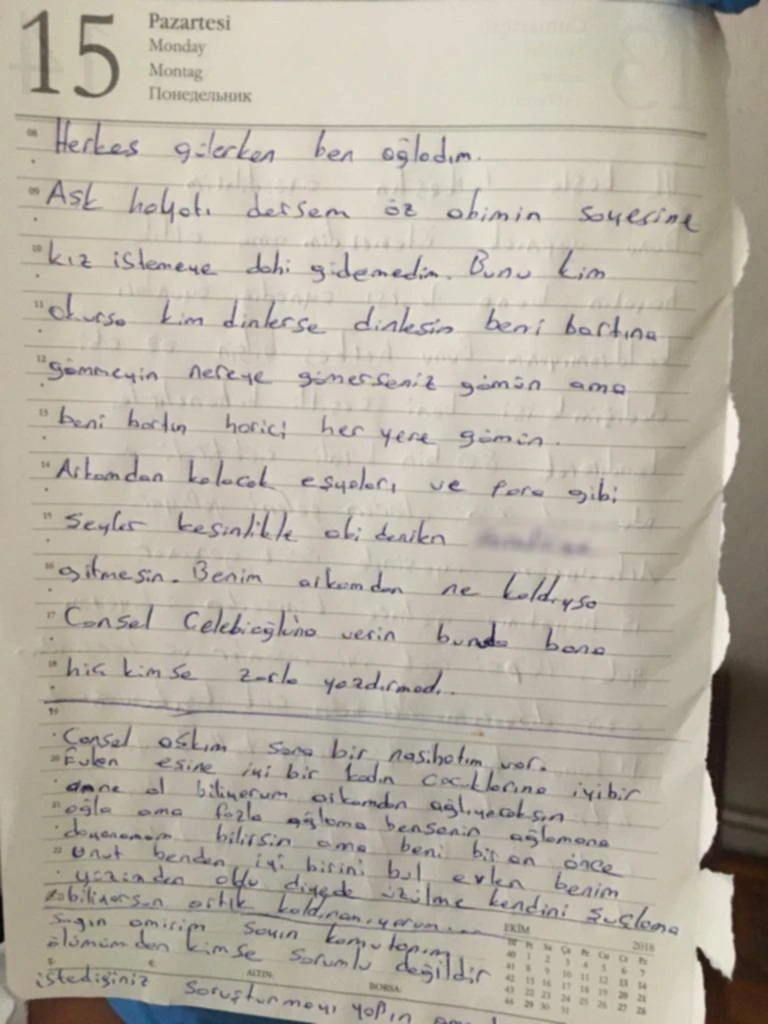 15
Pazartesi
Monday
Montag
Понедельник
Herkes gülerken ben ağladım.
Aşk hayatı dersem öz abimin sayesine
kız istemeye dahi gidemedim. Bunu kim
okursa kim dinlerse dinlesin beni bartına
gömmeyin nereye gömerseniz gömün ama
beni bartın harici her yere gömün.
Arkamdan kalacak eşyaları ve para gibi
şeyler kesinlikle abi deniken
gitmesin. Benim arkamdan ne kaldıysa
Cansel Çelebioğluna verin bunda bana
hiç kimse zorla yazdırmadı.
Cansel aşkım sana bir nasihatım var.
Evlen eşine iyi bir kadın çocuklarına iyi bir
anne ol biliyorum arkamdan ağlıyacaksın
ağla ama fazla ağlama ben senin ağlamana
dayanamam bilirsin ama beni bir an önce
unut benden iyi birini bul evlen benim
yüzümden oldu diyede üzülme kendini suçlama
biliyorsun artık kaldıramıyorum...
Sayın amirim sayın komutanım
ölümümden kimse sorumlu değildir
istediğiniz soruşturmayı yapın
EKİM 2018
ALTIN:
BORSA: